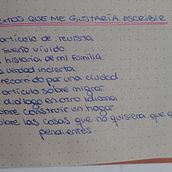 EXTOS QUE ME GUSTARÍA ESCRIBIR
artículo de revista
sueño vívido
historia de mi familia
verdad incierta
recorrido por una ciudad
artículo sobre migrar
diálogo en otro idioma
sobre construir un hogar
sobre las cosas que no quisiera que e
pendientes